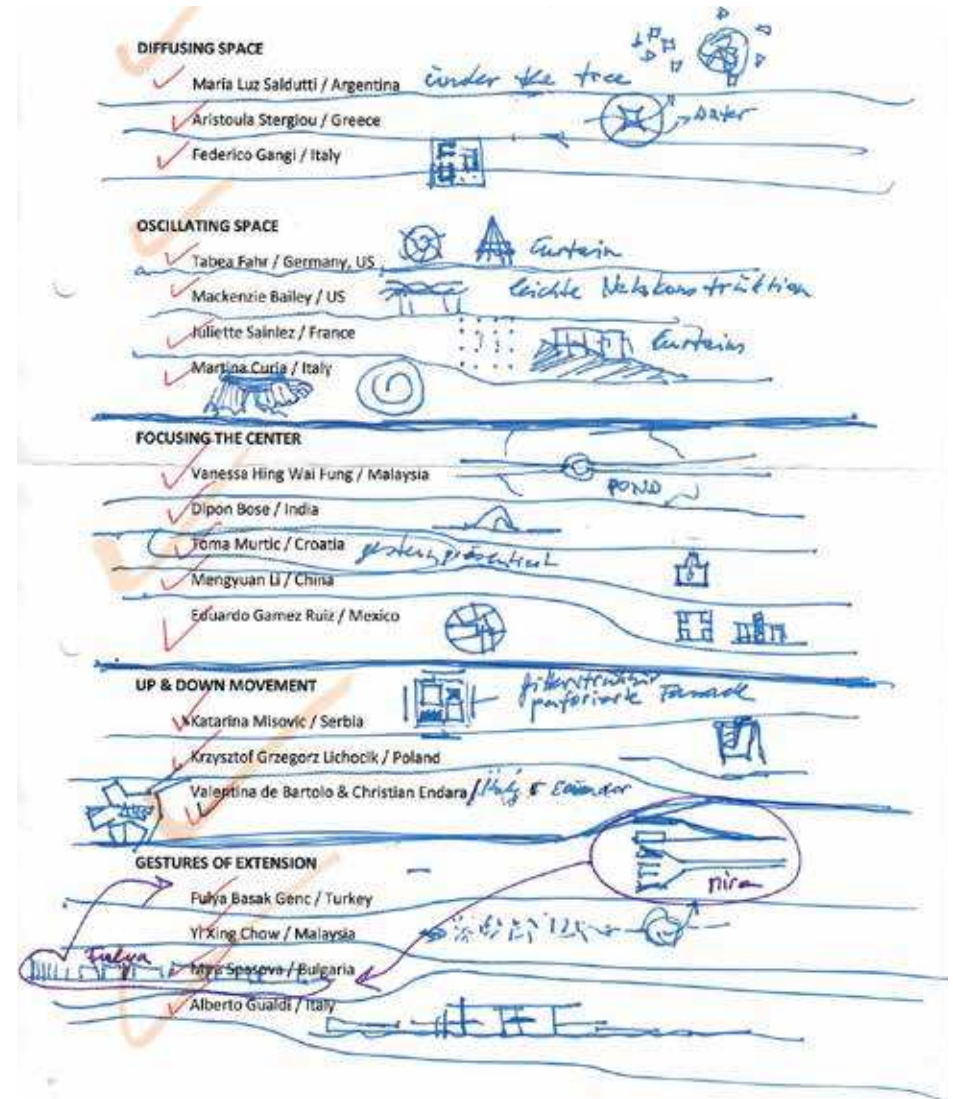 DIFFUSING SPACE
Maria Luz Saldutti / Argentina under the tree
Aristoula Stergiou / Greece
Federico Gangi / Italy
OSCILLATING SPACE
Tabea Fahr / Germany, US Curtain
Mackenzie Bailey / US leichte Netzkonstruktion
Juliette Sainlez / France Curtains
Martina Curia / Italy
FOCUSING THE CENTER
Vanessa Hing Wai Fung / Malaysia
POND
Dipon Bose / India
Toma Murtic / Croatia gestern
Mengyuan Li / China
Eduardo Gamez Ruiz / Mexico
UP & DOWN MOVEMENT
Fassade
Katarina Misovic / Serbia
Krzysztof Grzegorz Lichocik / Poland
Valentina de Bartolo & Christian Endara / Italy
GESTURES OF EXTENSION
Mira
Fulya Basak Genc / Turkey
Yi Xing Chow / Malaysia
Fulya
Mira Spasova / Bulgaria
Alberto Gualdi / Italy